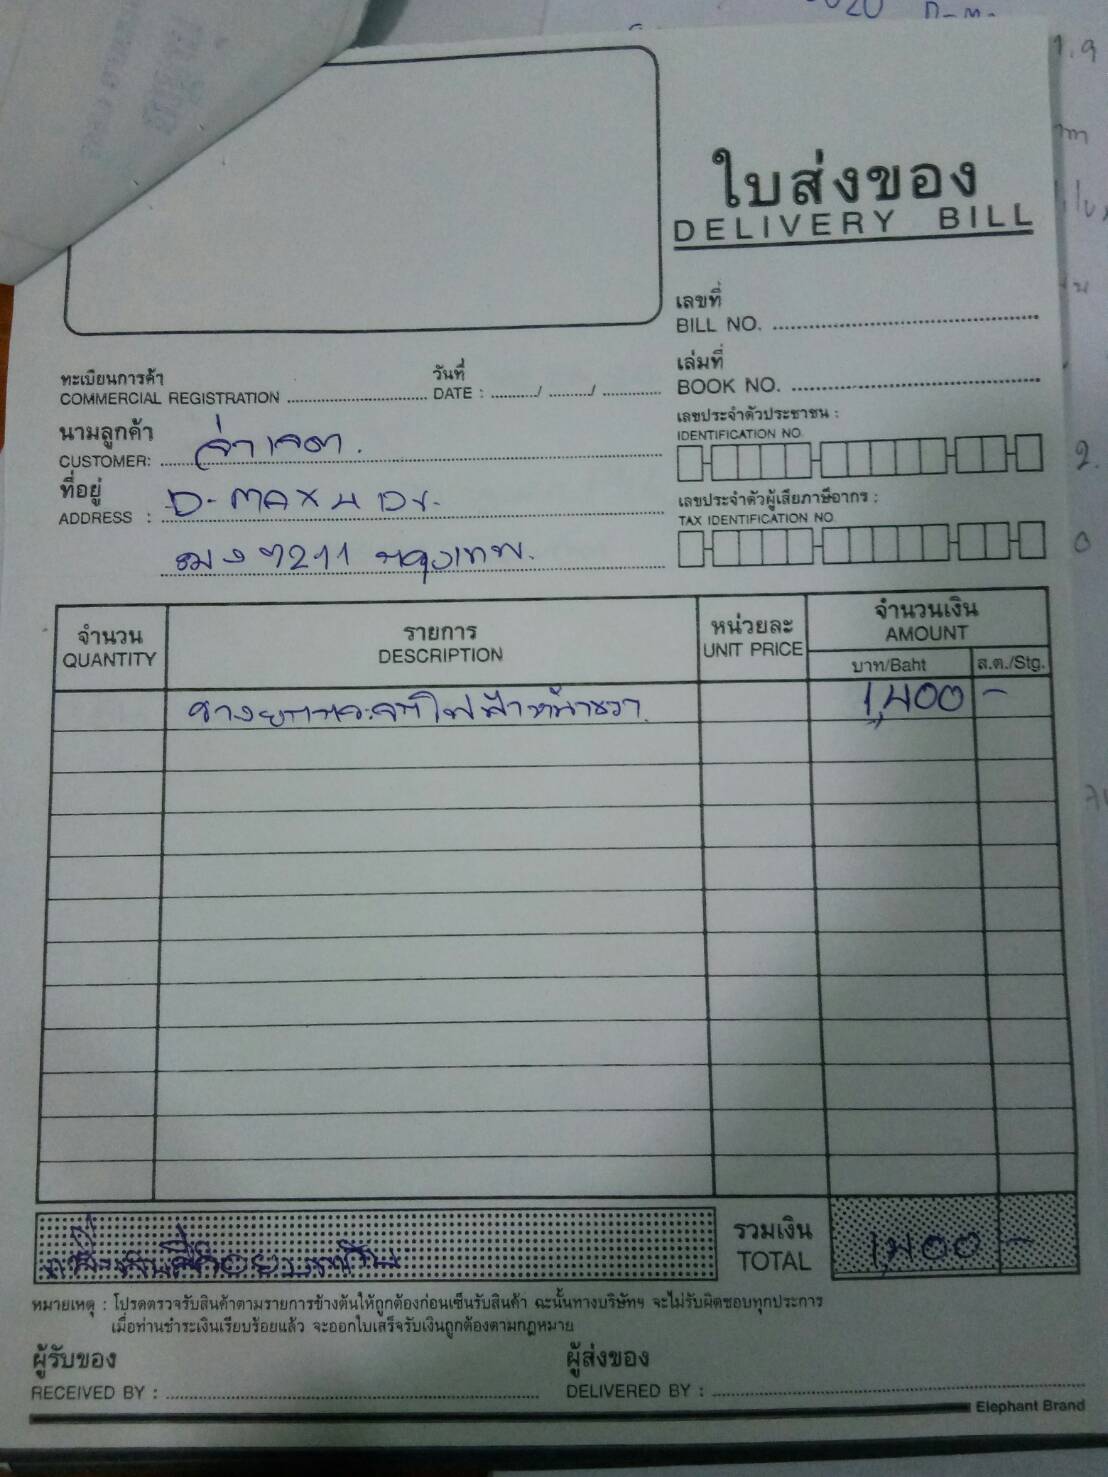 ใบส่งของ
DELIVERY BILL
เลขที่
BILL NO.
เล่มที่
BOOK NO.
ทะเบียนการค้า
COMMERCIAL REGISTRATION
วันที่
DATE : / /
เลขประจำตัวประชาชน :
IDENTIFICATION NO.
นามลูกค้า
CUSTOMER: จ่าเจตา.
ที่อยู่
ADDRESS : D-MAX 4 Dr.
7211 กรุงเทพ.
เลขประจำตัวผู้เสียภาษีอากร :
TAX IDENTIFICATION NO.
จำนวน
QUANTITY
รายการ
DESCRIPTION
หน่วยละ
UNIT PRICE
จำนวนเงิน
AMOUNT
บาท/Baht
ส.ต./Stg.
ไฟฟ้าหน้าขวา 1,400 -
รวมเงิน
TOTAL
1,400 -
หมายเหตุ : โปรดตรวจรับสินค้าตามรายการข้างต้นให้ถูกต้องก่อนเซ็นรับสินค้า ฉะนั้นทางบริษัทฯ จะไม่รับผิดชอบทุกประการ
เมื่อท่านชำระเงินเรียบร้อยแล้ว จะออกใบเสร็จรับเงินถูกต้องตามกฎหมาย
ผู้รับของ
RECEIVED BY :
ผู้ส่งของ
DELIVERED BY :
Elephant Brand